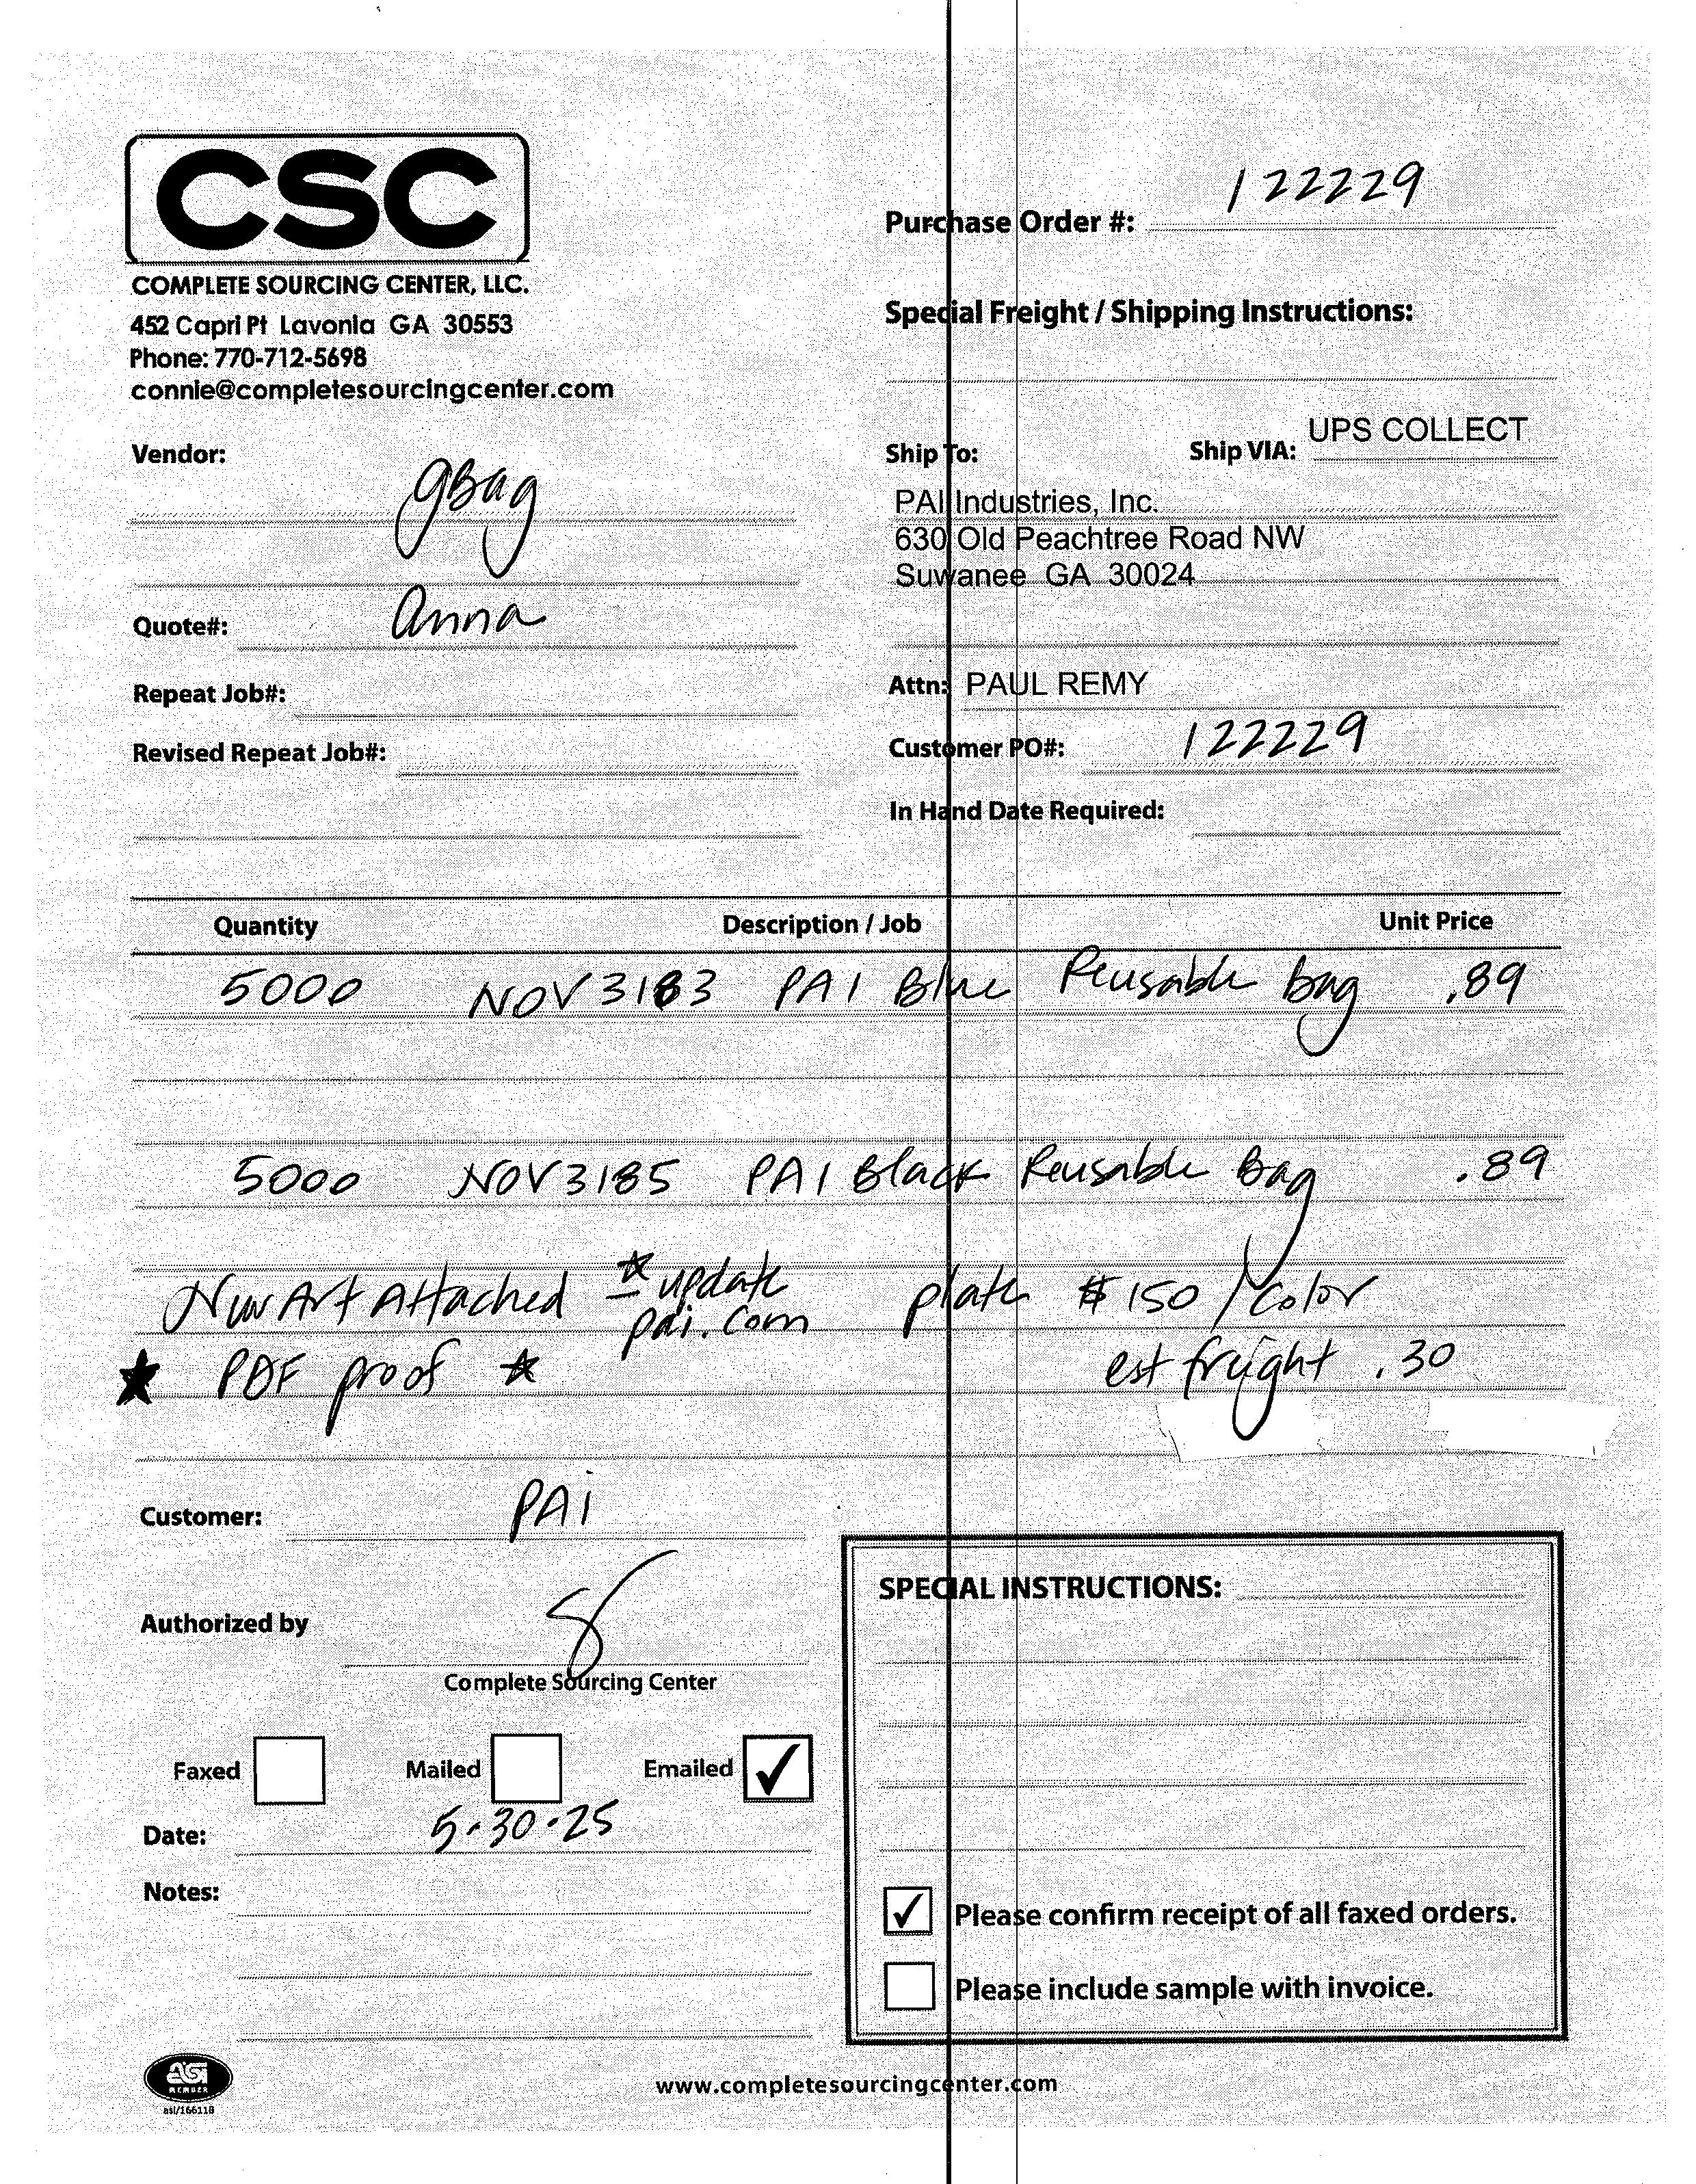 CSC
COMPLETE SOURCING CENTER, LLC.
452 Capri Pt Lavonia GA 30553
Phone: 770-712-5698
connie@completesourcingcenter.com
Purchase Order #: 122229
Special Freight / Shipping Instructions:
Vendor: gBag
Quote#: Anna
Repeat Job#:
Revised Repeat Job#:
Ship To:
Ship VIA: UPS COLLECT
PAI Industries, Inc.
630 Old Peachtree Road NW
Suwanee GA 30024
Attn: PAUL REMY
Customer PO#: 122229
In Hand Date Required:
Quantity Description / Job Unit Price
5000 NOV3183 PAI Blue Reusable bag .89
5000 NOV3185 PAI Black Reusable Bag .89
New Art Attached - * update
pai.com
plate $150 / Color
* PDF proof *
est freight .30
Customer: PAI
Authorized by
Complete Sourcing Center
Faxed Mailed Emailed ✓
Date: 5-30-25
Notes:
SPECIAL INSTRUCTIONS:
✓ Please confirm receipt of all faxed orders.
Please include sample with invoice.
ASI
MEMBER
asi/166118
www.completesourcingcenter.com